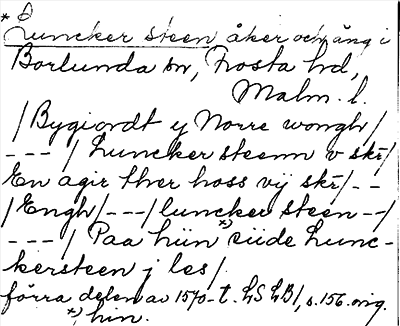 * Luncker steen åker och äng i
Borlunda sn, Frosta hd,
Malm. l.
/ Bygiordt y Norre wongh /
--- / Luncker steenn v skr/
En agir thver hoss vij skr/ --
/ Engh / --- / luncker steen --/
--- / Paa hün *) siide Lunc-
kersteen j les /.
förra delen av 1570-t. LSLB1, s. 156. orig.
*) hin.